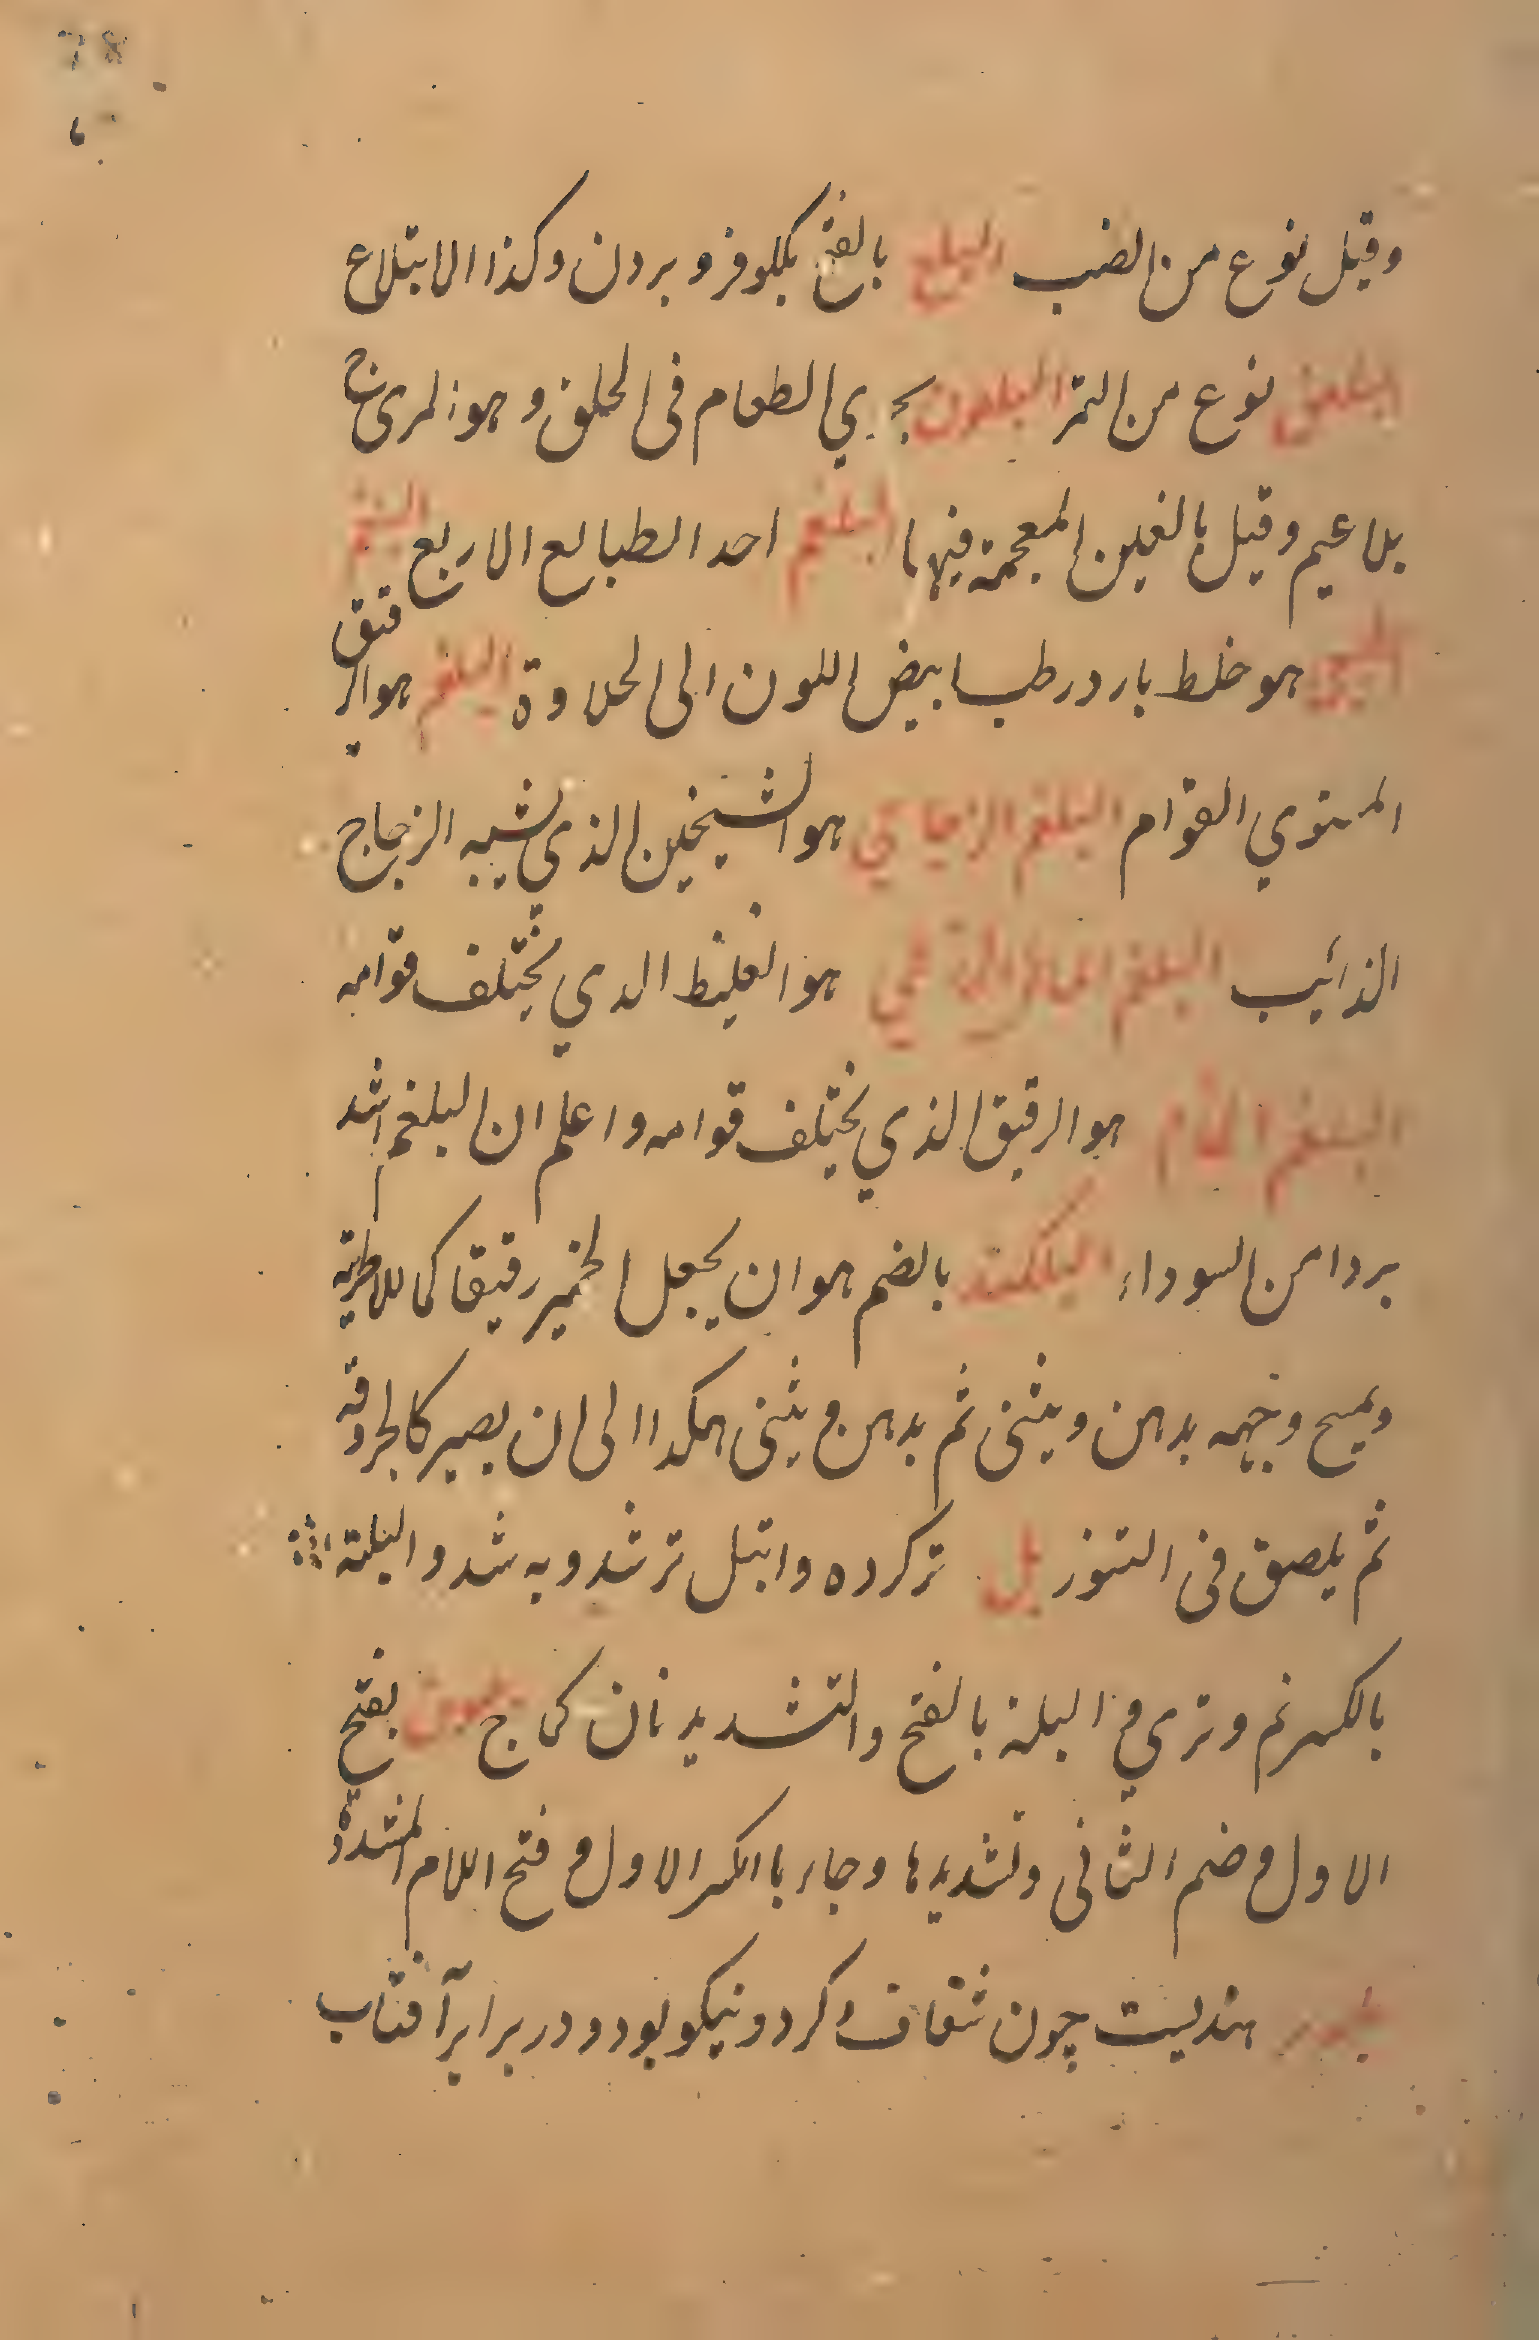 78
وقيل نوع من الضب البلع بالفتح بكلو فرو بردن وكذا الابتلاع
البلعق نوع من التمر البلعوم مجري الطعام فى الحلق وهو المرى ج
بلاعيم وقيل بالغين المعجمة فيهما البلغم احد الطبايع الاربع البلغم
هو خلط بارد رطب ابيض اللون الى الحلاوة البلغم هو الرقيق
المستوي القوام البلغم الزجاجي هو الشيخين الذي يشبه الزجاج
الذائيب البلغم هو الغليظ الدي يختلف قوامه
البلغم الخام هو الرقيق الذي يختلف قوامه واعلم ان البلغم اشد
بردا من السوداء بالضم هو ان يجعل الخمير رقيقا كما للاطرية
ويمسح وجهه بدهن ويثنى ثم بدهن ويثنى هكدا الى ان يصير كالجردقة
ثم يلصق فى التنور بل تر كرده وابتل تر شد و به شد والبلة
بالكسر نم وتري و البلة بالفتح والتشديد نان كماج بفتح
الاول وضم الثانى وتشديدها وجاء باالكسر الاول و فتح اللام المشددة
بلور هنديست چون شفاف و كرد و نيكو بود و در برابر آفتاب